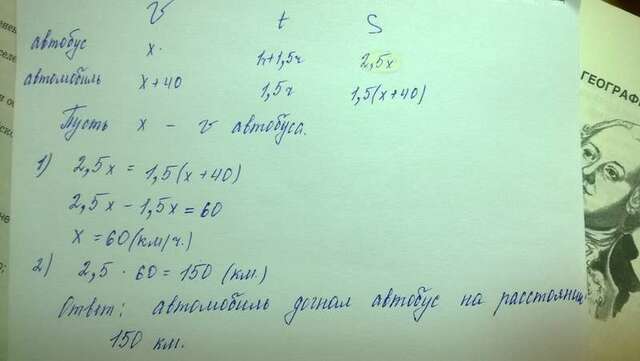 v t S
автобус x. 1ч+1,5ч 2,5x
автомобиль x+40 1,5ч 1,5(x+40)
Пусть x - v автобуса.
1) 2,5x = 1,5(x+40)
2,5x - 1,5x = 60
x = 60(км/ч.)
2) 2,5 · 60 = 150 (км.)
Ответ: автомобиль догнал автобус на расстоянии
150 км.
ГЕОГРАФ